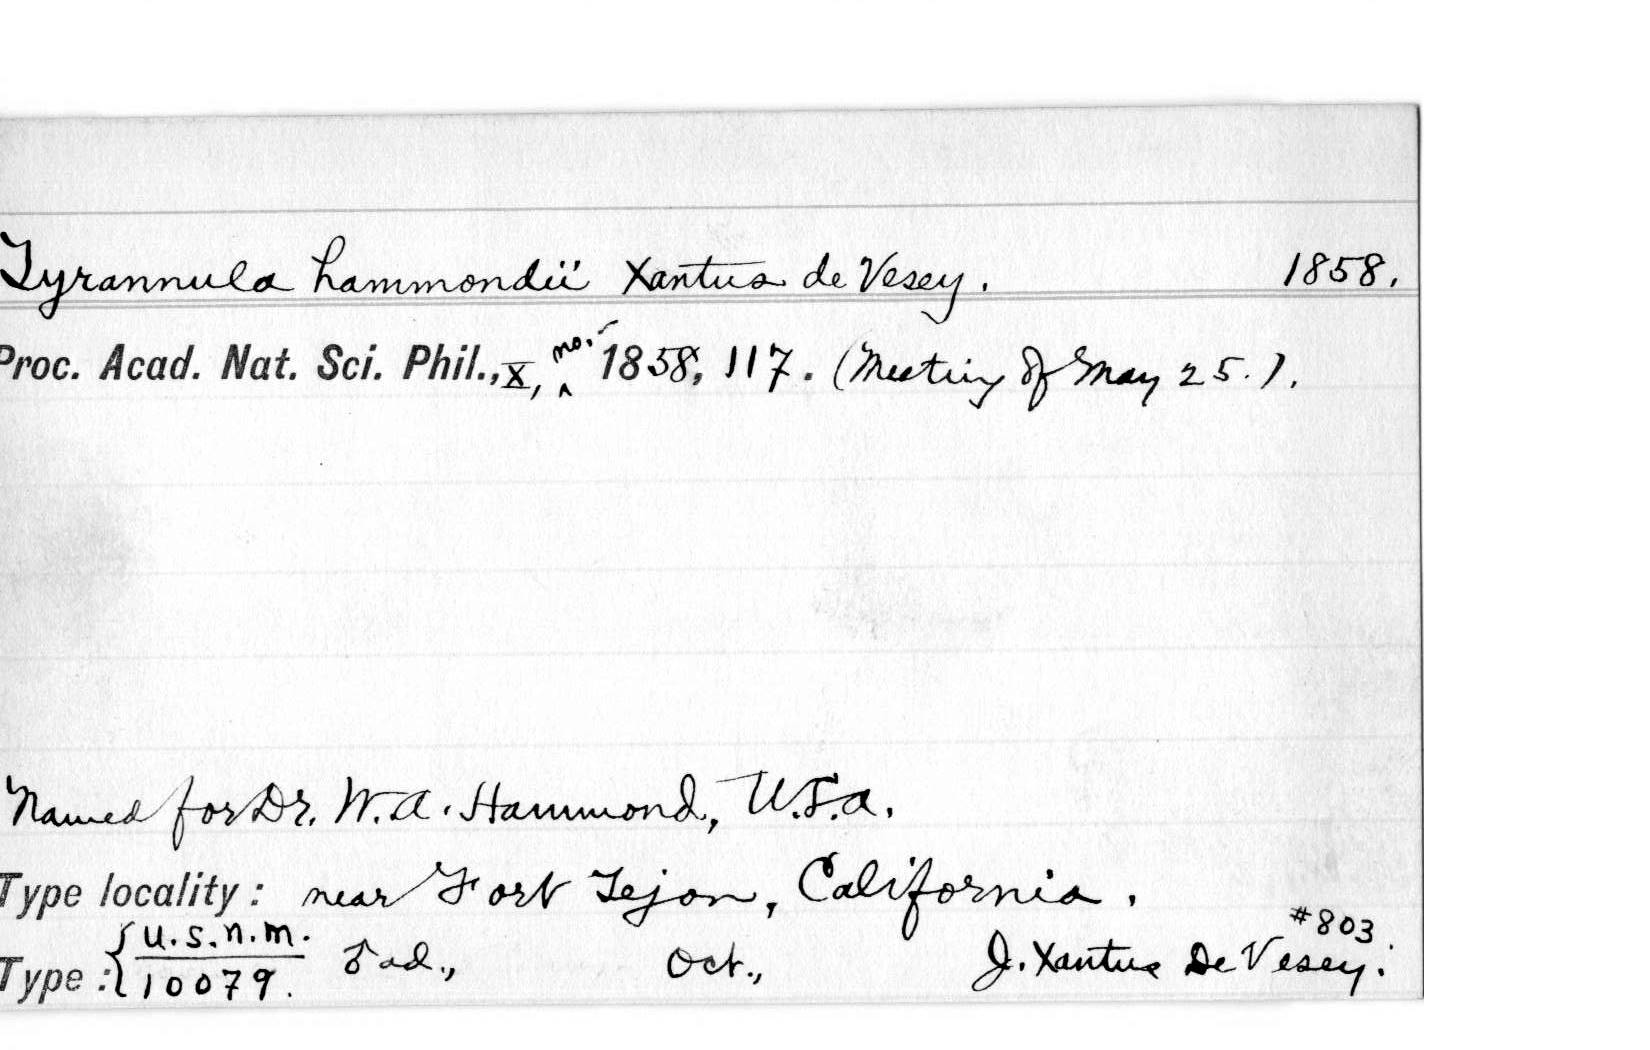 Tyrannula hammondii Xantus de Vesey. 1858.
Proc. Acad. Nat. Sci. Phil., X, no. 1858, 117. (Meeting of May 25.).
Named for Dr. W. A. Hammond, U.S.A.
Type locality: near Fort Tejon, California.
#803.
Type: { U.S.N.M. 10079. ad., Oct., J. Xantus De Vesey.